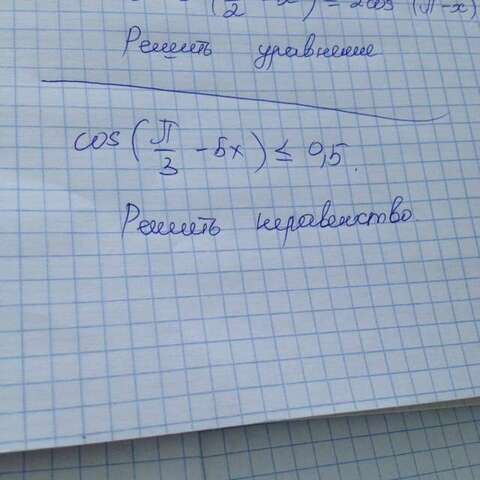 (π/2 - x) = 2cos (π - x)
Решить уравнение
cos(π/3 - 5x) ≤ 0,5.
Решить неравенство